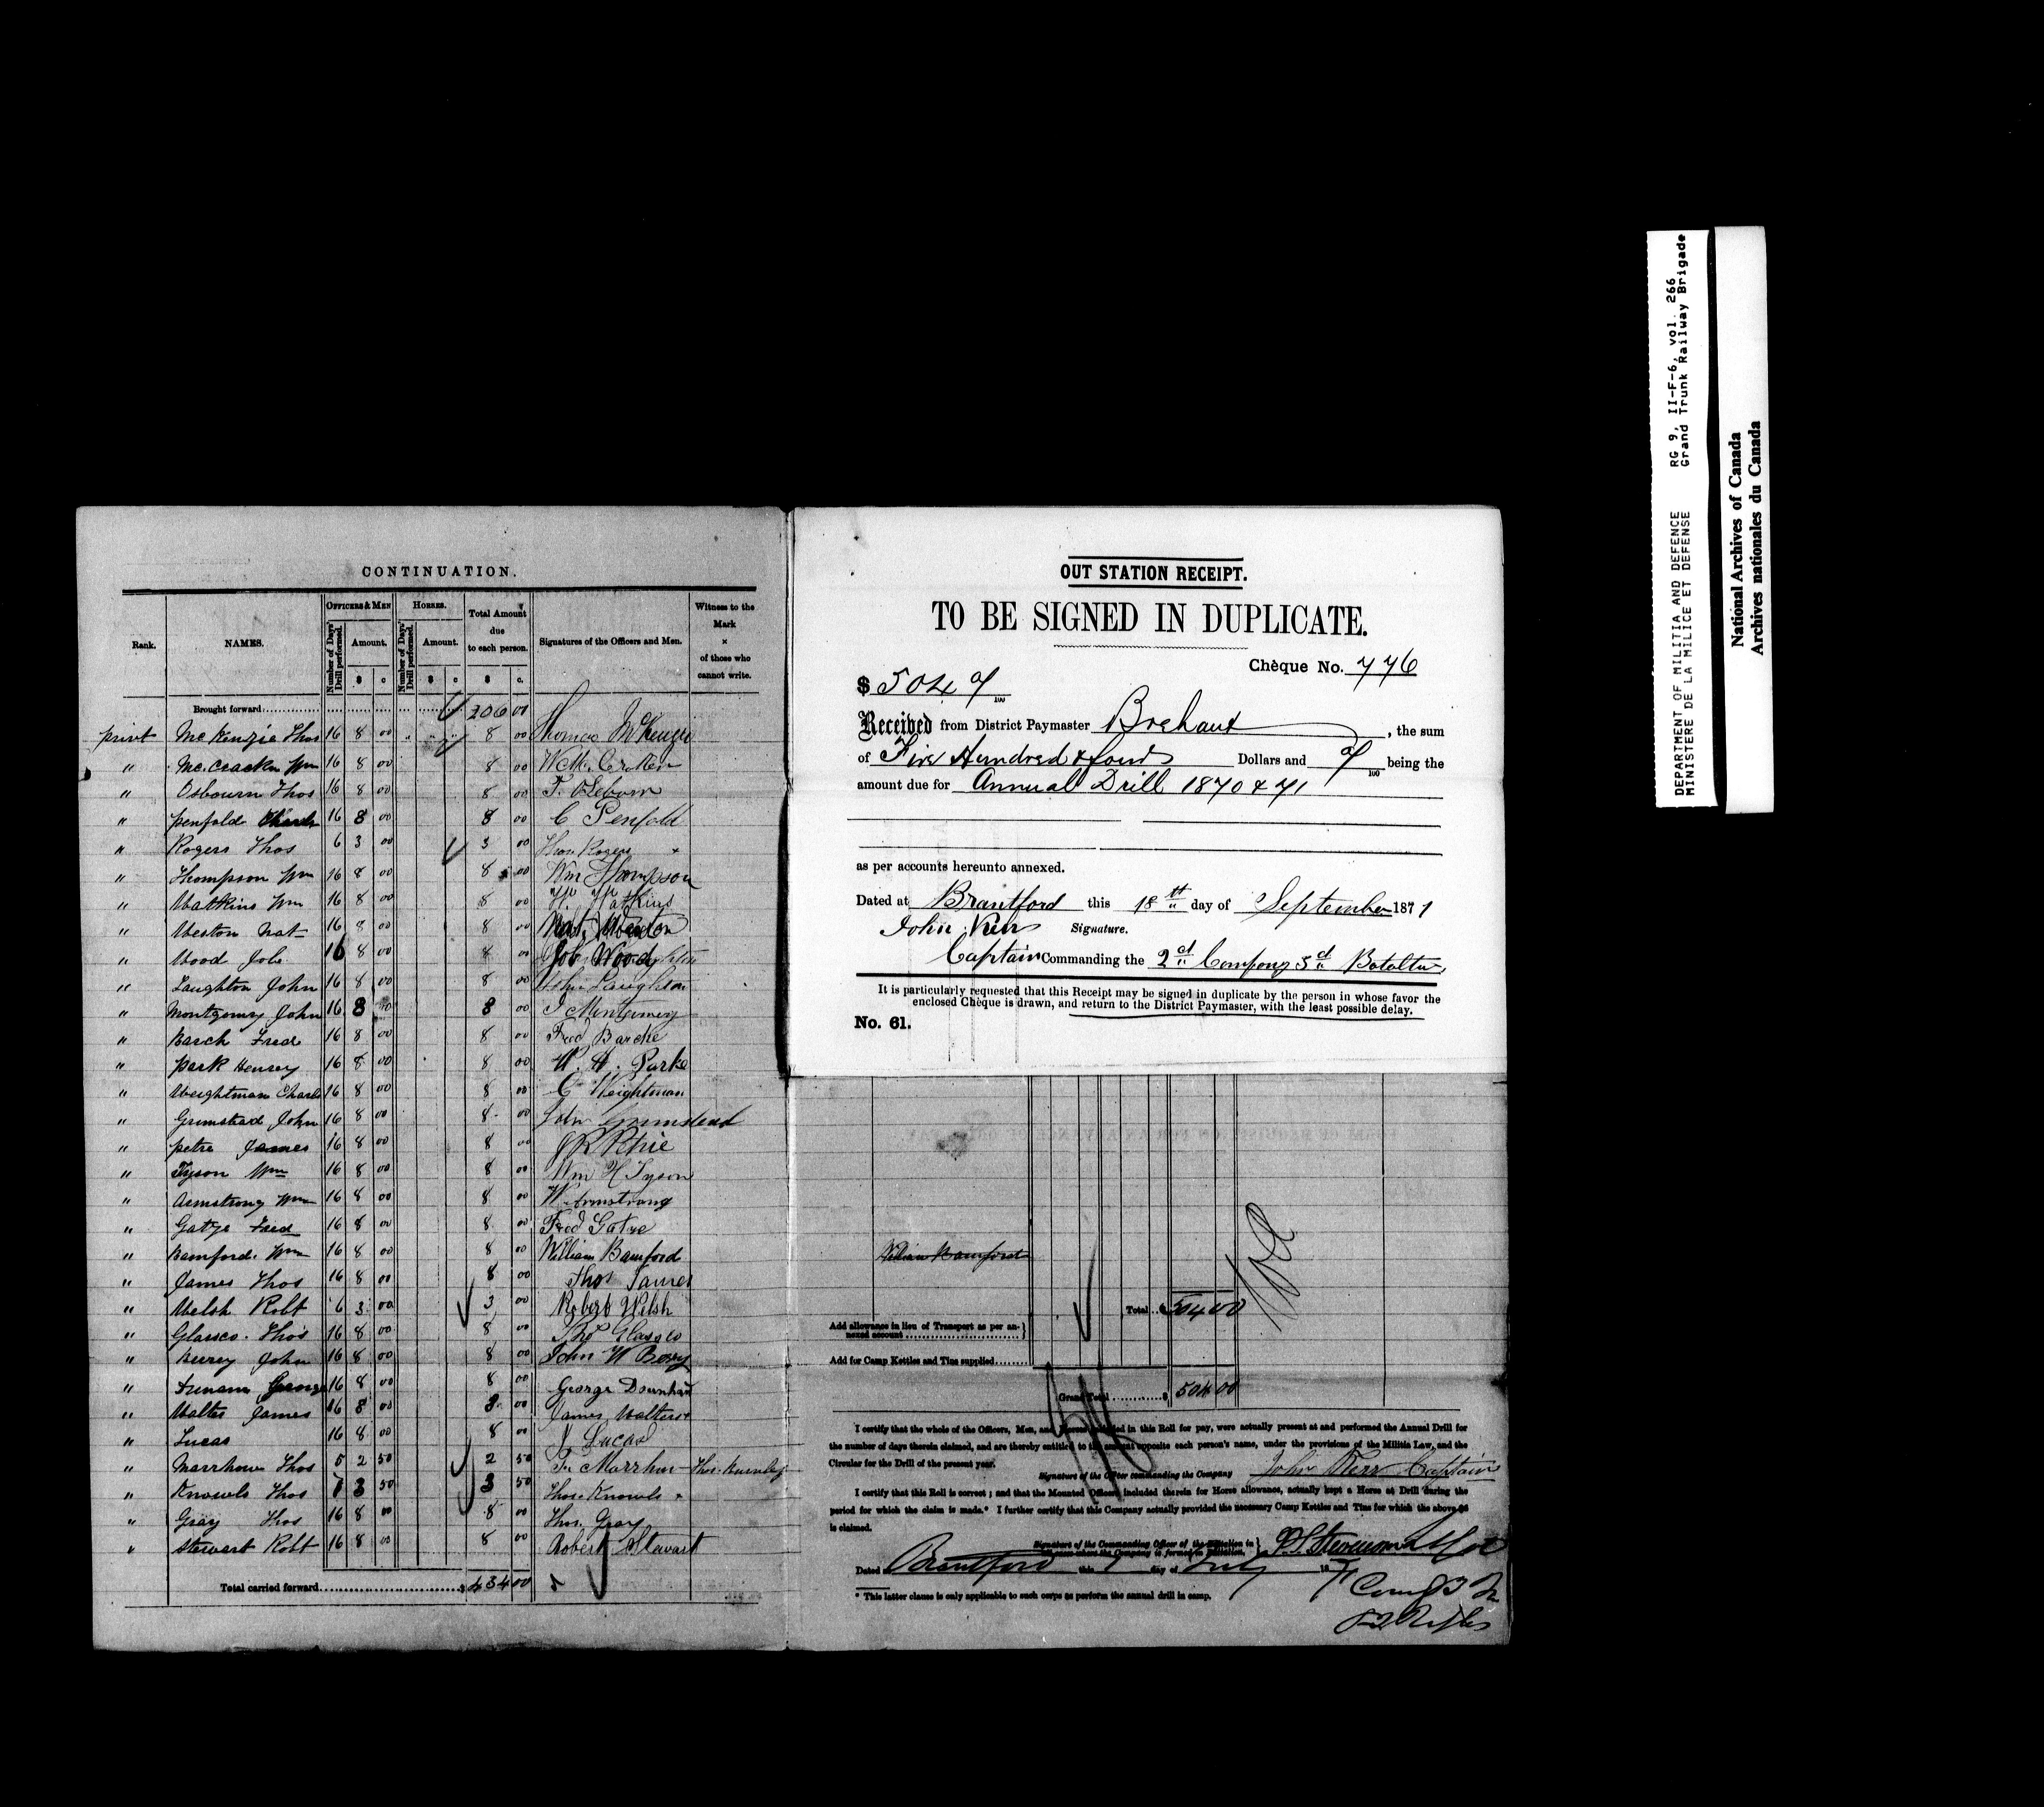 CONTINUATION.
Rank.
NAMES.
OFFICERS & MEN
Number of Days' Drill performed.
Amount.
$ c
HORSES.
Number of Days' Drill performed.
Amount.
$ c
Total Amount due to each person.
$ c.
Signatures of the Officers and Men.
Witness to the Mark × of those who cannot write.
Brought forward 206 00
privt McKenzie Thos 16 8 00 8 00 Thomas McKenzie
" McCracken Wm 16 8 00 8 00
" Osbourn Thos 16 8 00 8 00
" penfold Charls 16 8 00 8 00 C Penfold
" Rogers Thos 6 3 00 3 00 Thos Rogers +
" Thompson Wm 16 8 00 8 00 Wm Thompson
" Watkins Wm 16 8 00 8 00 W. Watkins
" Weston Nat 16 8 00 8 00
" Wood Job 16 8 00 8 00 Job Wood
" Laughton John 16 8 00 8 00 John Laughton
" Montgomry John 16 8 00 8 00 J Montgomery
" Barch Fred 16 8 00 8 00 Fred Barche
" park Henery 16 8 00 8 00 W. H. Parke
" Weightman Charls 16 8 00 8 00 C Weightman
" Grimstead John 16 8 00 8 00 John Grimstead
" petre James 16 8 00 8 00
" Tyson Wm 16 8 00 8 00 Wm H Tyson
" Armstrong Wm 16 8 00 8 00 W. Armstrong
" Gatze Fred 16 8 00 8 00 Fred Gatze
" Bamford Wm 16 8 00 8 00 William Bamford
" James Thos 16 8 00 8 00 Thos James
" Welsh Robt 6 3 00 3 00 Robert Welsh
" Glassco Thos 16 8 00 8 00 Thos Glassco
" John 16 8 00 8 00 John W
" George 16 8 00 8 00 George
" Walter James 16 8 00 8 00 James Walters +
" Lucas 16 8 00 8 00 J Lucas
" Thos 5 2 50 2 50
" Knowls Thos 7 3 50 3 50 Thos Knowls +
" Gray Thos 16 8 00 8 00 Thos. Gray
" Stewart Robt 16 8 00 8 00 Robert Stewart
Total carried forward $ 434 00
OUT STATION RECEIPT.
TO BE SIGNED IN DUPLICATE.
Chèque No. 776
$ 504 /100
Received from District Paymaster Brehaut, the sum
of Five Hundred & four Dollars and /100 being the
amount due for Annual Drill 1870 & 71
as per accounts hereunto annexed.
Dated at Brantford this 18th day of September 1871
John Kerr Signature.
Captain Commanding the 2d Company 3d
It is particularly requested that this Receipt may be signed in duplicate by the person in whose favor the
enclosed Chèque is drawn, and return to the District Paymaster, with the least possible delay.
No. 61.
William Bamford
Total .. $ 504 00
Add allowance in lieu of Transport as per an-
nexed account
Add for Camp Kettles and Tins supplied
Grand Total $ 504 00
I certify that the whole of the Officers, Men, and Horses included in this Roll for pay, were actually present at and performed the Annual Drill for
the number of days therein claimed, and are thereby entitled to the amount opposite each person's name, under the provisions of the Militia Law, and the
Circular for the Drill of the present year.
Signature of the Officer commanding the Company John Kerr Captain
I certify that this Roll is correct; and that the Mounted Officers included therein for Horse allowance, actually kept a Horse at Drill during the
period for which the claim is made.* I further certify that this Company actually provided the necessary Camp Kettles and Tins for which the above $
is claimed.
Signature of the Commanding Officer of the Battalion in
case where the Company is formed in Battalion,
Dated Brantford this 7 day of July 1871
* This latter clause is only applicable to such corps as perform the annual drill in camp.
DEPARTMENT OF MILITIA AND DEFENCE RG 9, II-F-6, vol. 266
MINISTERE DE LA MILICE ET DEFENSE Grand Trunk Railway Brigade
National Archives of Canada
Archives nationales du Canada